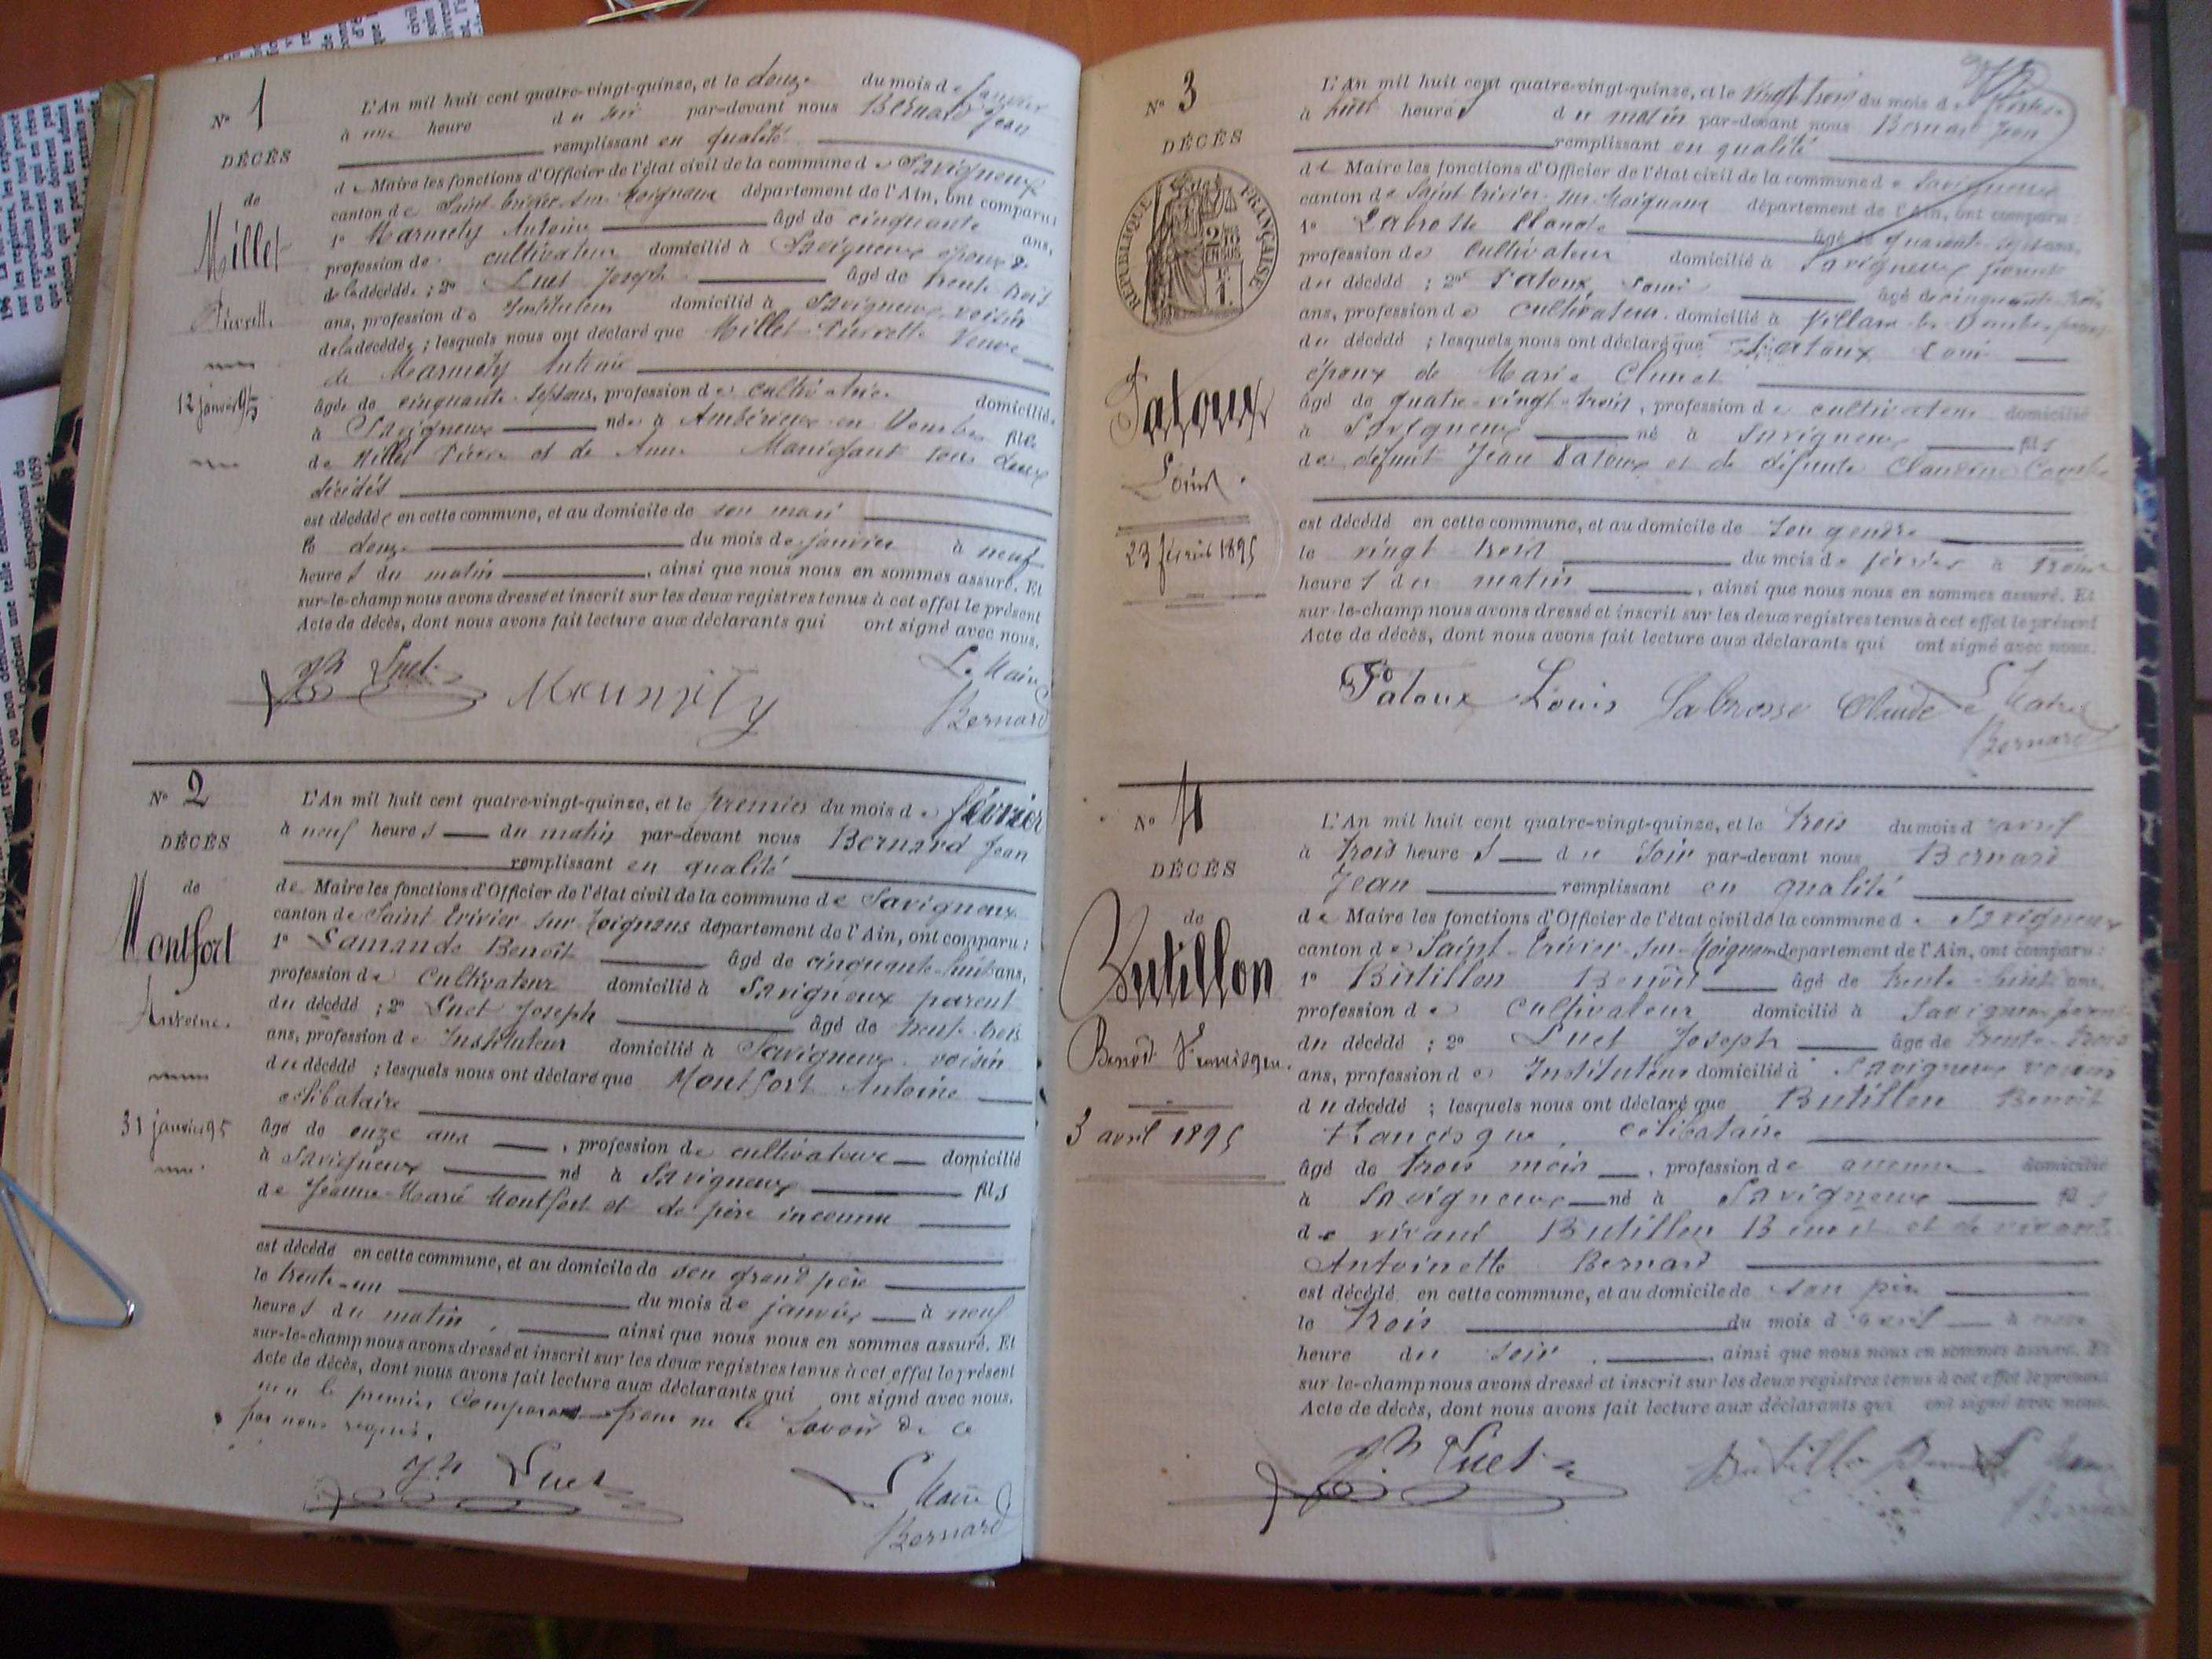 N° 1
DÉCÈS
de
Millet
Pierrette
12 janvier 95
L'An mil huit cent quatre-vingt-quinze, et le douze du mois de janvier
à une heure du soir par-devant nous Bernard Jean
remplissant en qualité
de Maire les fonctions d'Officier de l'état civil de la commune de Savigneux
canton de Saint-Trivier-sur-Moignans département de l'Ain, ont comparu:
1° Antoine âgé de cinquante ans,
profession de cultivateur domicilié à Savigneux époux
de la décédée ; 2° Luet Joseph âgé de trente trois
ans, profession de Instituteur domicilié à Savigneux voisin
de la décédée ; lesquels nous ont déclaré que Millet Pierrette
de Antoine
âgée de cinquante-sept ans, profession de cultivatrice domiciliée
à Savigneux née à Ambérieux-en-Dombes fille
de Millet Pierre et de Anne tous deux
décédés
est décédée en cette commune, et au domicile de son mari
le douze du mois de janvier à neuf
heures du matin, ainsi que nous nous en sommes assuré. Et
sur-le-champ nous avons dressé et inscrit sur les deux registres tenus à cet effet le présent
Acte de décès, dont nous avons fait lecture aux déclarants qui ont signé avec nous.
Jh Luet Le Maire
Bernard
N° 2
DÉCÈS
de
Montfort
Antoine
31 janvier 95
L'An mil huit cent quatre-vingt-quinze, et le premier du mois de février
à neuf heures du matin par-devant nous Bernard Jean
remplissant en qualité
de Maire les fonctions d'Officier de l'état civil de la commune de Savigneux
canton de Saint Trivier-sur-Moignans département de l'Ain, ont comparu:
1° Lamande Benoît âgé de cinquante-huit ans,
profession de Cultivateur domicilié à Savigneux parent
du décédé ; 2° Luet Joseph âgé de trente-trois
ans, profession de Instituteur domicilié à Savigneux voisin
du décédé ; lesquels nous ont déclaré que Montfort Antoine
célibataire
âgé de onze ans, profession de cultivateur domicilié
à Savigneux né à Savigneux fils
de Jeanne-Marie Montfort et de père inconnu
est décédé en cette commune, et au domicile de son grand père
le trente-un du mois de janvier à neuf
heures du matin, ainsi que nous nous en sommes assuré. Et
sur-le-champ nous avons dressé et inscrit sur les deux registres tenus à cet effet le présent
Acte de décès, dont nous avons fait lecture aux déclarants qui ont signé avec nous.
non le premier Comparant pour ne le savoir de ce
par nous requis.
Jh Luet Le Maire
Bernard
N° 3
DÉCÈS
RÉPUBLIQUE FRANÇAISE
2/10
EN SUS
Patoux
Louis
23 février 1895
L'An mil huit cent quatre-vingt-quinze, et le vingt trois du mois de février
à huit heures du matin par-devant nous Bernard Jean
remplissant en qualité
de Maire les fonctions d'Officier de l'état civil de la commune de Savigneux
canton de Saint Trivier-sur-Moignans département de l'Ain, ont comparu:
1° Labrosse Claude âgé de quarante-sept ans,
profession de cultivateur domicilié à Savigneux parent
du décédé ; 2° Patoux Louis âgé de cinquante-trois
ans, profession de cultivateur domicilié à Villars les Dombes parent
du décédé ; lesquels nous ont déclaré que Patoux Louis
époux de Marie Clunet
âgé de quatre-vingt-trois, profession de cultivateur domicilié
à Savigneux né à Savigneux fils
de défunt Jean Patoux et de défunte Claudine
est décédé en cette commune, et au domicile de son gendre
le vingt-trois du mois de février à trois
heures du matin, ainsi que nous nous en sommes assuré. Et
sur-le-champ nous avons dressé et inscrit sur les deux registres tenus à cet effet le présent
Acte de décès, dont nous avons fait lecture aux déclarants qui ont signé avec nous.
Patoux Louis Labrosse Claude Le Maire
Bernard
N° 4
DÉCÈS
de
Butillon
Benoît Francisque
3 avril 1895
L'An mil huit cent quatre-vingt-quinze, et le trois du mois d'avril
à trois heures du soir par-devant nous Bernard
Jean remplissant en qualité
de Maire les fonctions d'Officier de l'état civil de la commune de Savigneux
canton de Saint-Trivier-sur-Moignans département de l'Ain, ont comparu:
1° Butillon Benoît âgé de trente-huit ans,
profession de cultivateur domicilié à Savigneux parent
du décédé ; 2° Luet Joseph âgé de trente-trois
ans, profession de Instituteur domicilié à Savigneux voisin
du décédé ; lesquels nous ont déclaré que Butillon Benoît
Francisque, célibataire
âgé de trois mois, profession de aucune domicilié
à Savigneux né à Savigneux fils
de vivant Butillon Benoît et de vivante
Antoinette Bernard
est décédé en cette commune, et au domicile de son père
le trois du mois d'avril à
heure du soir, ainsi que nous nous en sommes assuré. Et
sur-le-champ nous avons dressé et inscrit sur les deux registres tenus à cet effet le présent
Acte de décès, dont nous avons fait lecture aux déclarants qui ont signé avec nous.
Jh Luet Butillon Benoît Le Maire
Bernard